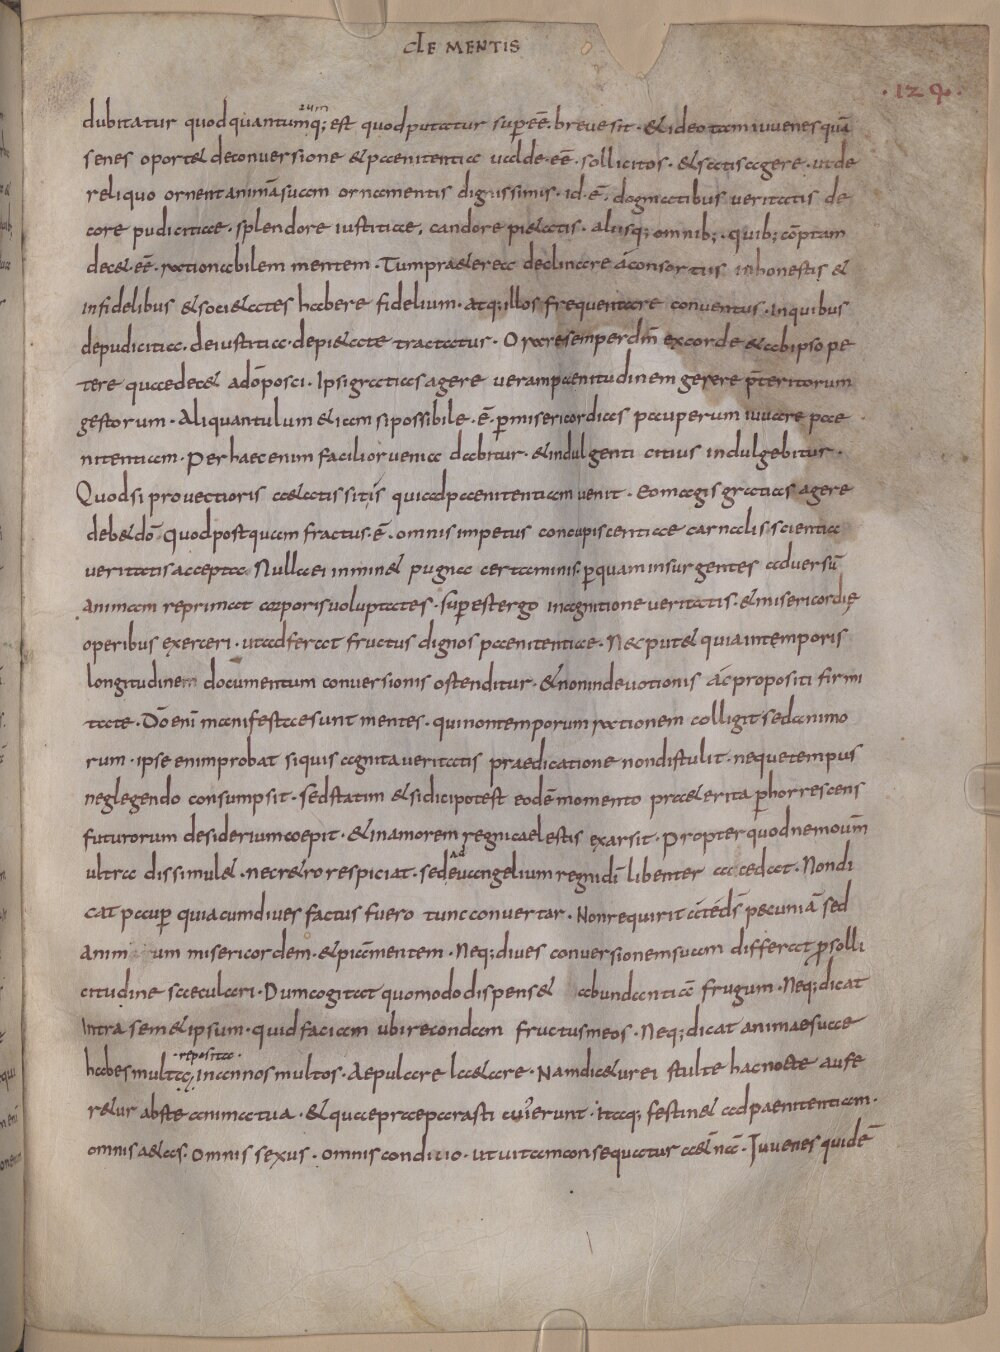 CLEMENTIS
·129·
dubitatur quod quantumq; est quod putatur sup eē. breve sit · & ideo tam iuvenes quā
senes oport& deconversione & paenitentia valde · eē · sollicitos · & satis agere · ut de
reliquo ornent animā suam ornamentis dignissimis · id · ē · dogmatibus veritatis de
core pudicitiae · splendore iustitiae, candore pi&atis · aliisq; omnib; · quib; cōptam
dec& · eē · rationabilem mentem · Tum pra&erea declinare a consortiis inhonestis &
infidelibus & soci&ates habere fidelium · atq; illos frequentare conventus · In quibus
depudicitia · deiustitia · depi&ate tractatur · Orare semper dm̄ ex corde & ab ipso pe
tere quae dec& adō posci · Ipsi gratias agere veram paenitudinem gerere p̄teritorum
gestorum · Aliquantulum &iam si possibile · ē · p misericordias pauperum iuvare pae
nitentiam · Per haec enim facilior venia dabitur · & indulgenti citius indulgebitur ·
Quod si provectioris a&atis sit is qui ad paenitentiam venit · Eo magis gratias agere
deb& dō quod postquam fractus · ē · omnis impetus concupiscentiae carnalis scientia
veritatis accepta Nulla ei inmin& pugna certaminis · p quam insurgentes adversū
animam reprimat corporis voluptates · sup est ergo in agnitione veritatis · & misericordię
operibus exerceri · ut adferat fructus dignos paenitentiae · Nec put& quia in temporis
longitudinem documentum conversionis ostenditur · & non in devotionis ac propositi firmi
tate · Dō enī manifestae sunt mentes · qui non temporum rationem colligit sed animo
rum · ipse enim probat si quis agnita veritatis praedicatione non distulit · neque tempus
neglegendo consumpsit · sed statim & si dici potest eodē momento pra&erita phorrescens
futurorum desiderium coepit · & in amorem regni caelestis exarsit · Propter quod nemo uim̄
ultra dissimul& · nec r&ro respiciat · sed ad euangelium regni dī libenter accedat · Non di
cat paup quia cum dives factus fuero tunc convertar · Non requirit a te ds̄ pecuniā sed
anim um misericordem · & piā mentem · Neq; dives conversionem suam differat p solli
citudine saeculari · Dum cogitat quomodo dispens& abundantiā frugum · Neq; dicat
Intra sem&ipsum · quid faciam ubi recondam fructus meos · Neq; dicat animae suae
habes multa, ·reposita· in annos multos · Aepulare la&are · Nam dic&ur ei stulte hac nocte aufe
r&ur abs te anima tua · & quae praeparasti cuius erunt · Itaq; festin& ad paenitentiam ·
omnis a&as · Omnis sexus · Omnis conditio · ut vitam consequatur a&nā · Iuvenes quidē